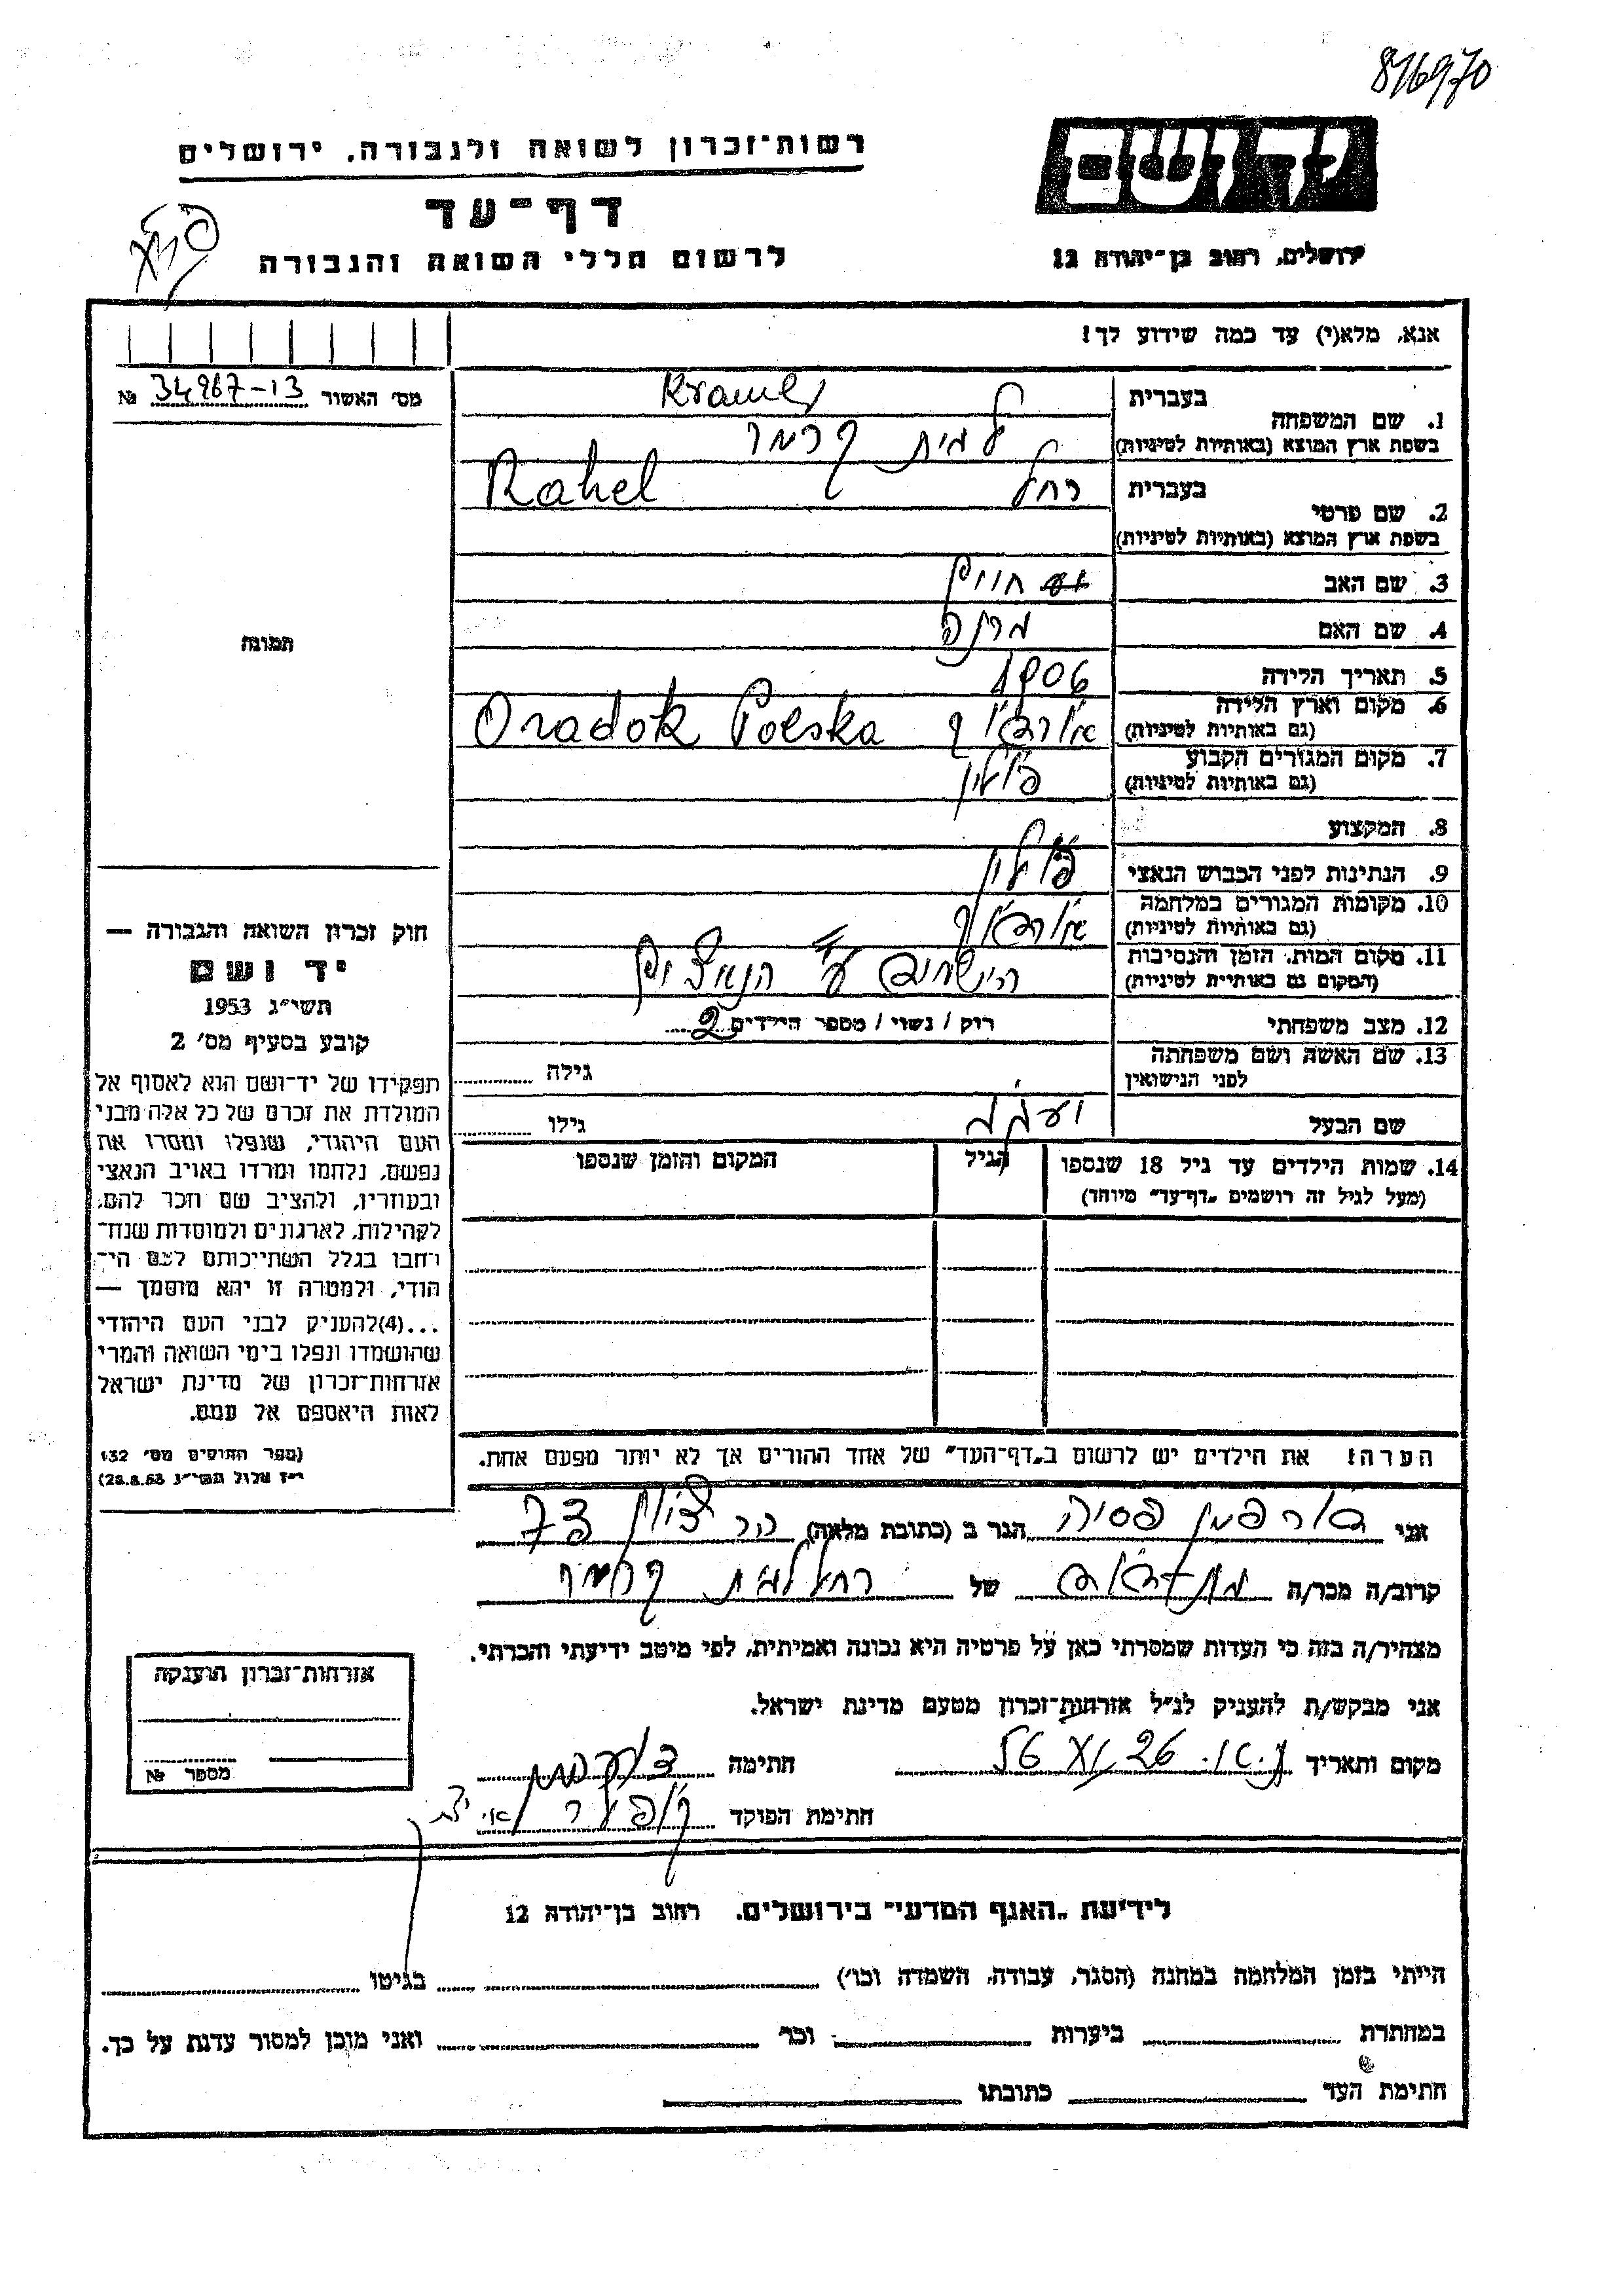 816970
יד ושם
רשות־זכרון לשואה ולגבורה, ירושלים
דף־עד
ירושלים, רחוב בן־יהודה 12
לרשום חללי השואה והגבורה
אנא, מלא(י) עד כמה שידוע לך!
מס׳ האשור 34967-13 №
בעברית
Kramer
1. שם המשפחה
בשפת ארץ המוצא (באותיות לטיניות)
לבית קרמר
בעברית
רחל Rahel
2. שם פרטי
בשפת ארץ המוצא (באותיות לטיניות)
3. שם האב חיים
4. שם האם
5. תאריך הלידה 1906
6. מקום וארץ הלידה
(גם באותיות לטיניות)
Oradok Polska
7. מקום המגורים הקבוע
(גם באותיות לטיניות)
פולין
8. המקצוע
9. הנתינות לפני הכבוש הנאצי פולין
10. מקומות המגורים במלחמה
(גם באותיות לטיניות)
11. מקום המות, הזמן והנסיבות
(המקום גם באותיות לטיניות)
ע״י הנאצים
12. מצב משפחתי רוק / נשוי / מספר הילדים 2
13. שם האשה ושם משפחתה
לפני הנישואין
גילה
שם הבעל יעקב גילו
14. שמות הילדים עד גיל 18 שנספו
(מעל לגיל זה רושמים „דף־עד״ מיוחד)
הגיל
המקום והזמן שנספו
הערה: את הילדים יש לרשום ב„דף־העד״ של אחד ההורים אך לא יותר מפעם אחת.
תמונה
חוק זכרון השואה והגבורה —
יד ושם
תשי״ג 1953
קובע בסעיף מס׳ 2
תפקידו של יד־ושם הוא לאסוף אל
המולדת את זכרם של כל אלה מבני
העם היהודי, שנפלו ומסרו את
נפשם, נלחמו ומרדו באויב הנאצי
ובעוזריו, ולהציב שם וזכר להם,
לקהילות, לארגונים ולמוסדות שנח־
רבו בגלל השתייכותם לעם הי־
הודי, ולמטרה זו יהא מוסמך —
...(4)להעניק לבני העם היהודי
שהושמדו ונפלו בימי השואה והמרי
אזרחות־זכרון של מדינת ישראל
לאות היאספם אל עמם.
(ספר החוקים מס׳ 132
י״ז אלול תשי״ג 28.8.53)
אני פסיה הגר ב (כתובת מלאה) הר ציון 73
קרוב/ה מכר/ה של רחל לבית קרמר
מצהיר/ה בזה כי העדות שמסרתי כאן על פרטיה היא נכונה ואמיתית, לפי מיטב ידיעתי והכרתי.
אני מבקש/ת להעניק לנ״ל אזרחות־זכרון מטעם מדינת ישראל.
מקום ותאריך חתימה
חתימת הפוקד
אזרחות־זכרון הוענקה
מספר №
לידיעת „האגף המדעי״ בירושלים. רחוב בן־יהודה 12
הייתי בזמן המלחמה במחנה (הסגר, עבודה, השמדה וכו׳) בגיטו
במחתרת ביערות וכו׳ ואני מוכן למסור עדות על כך.
חתימת העד כתובתו